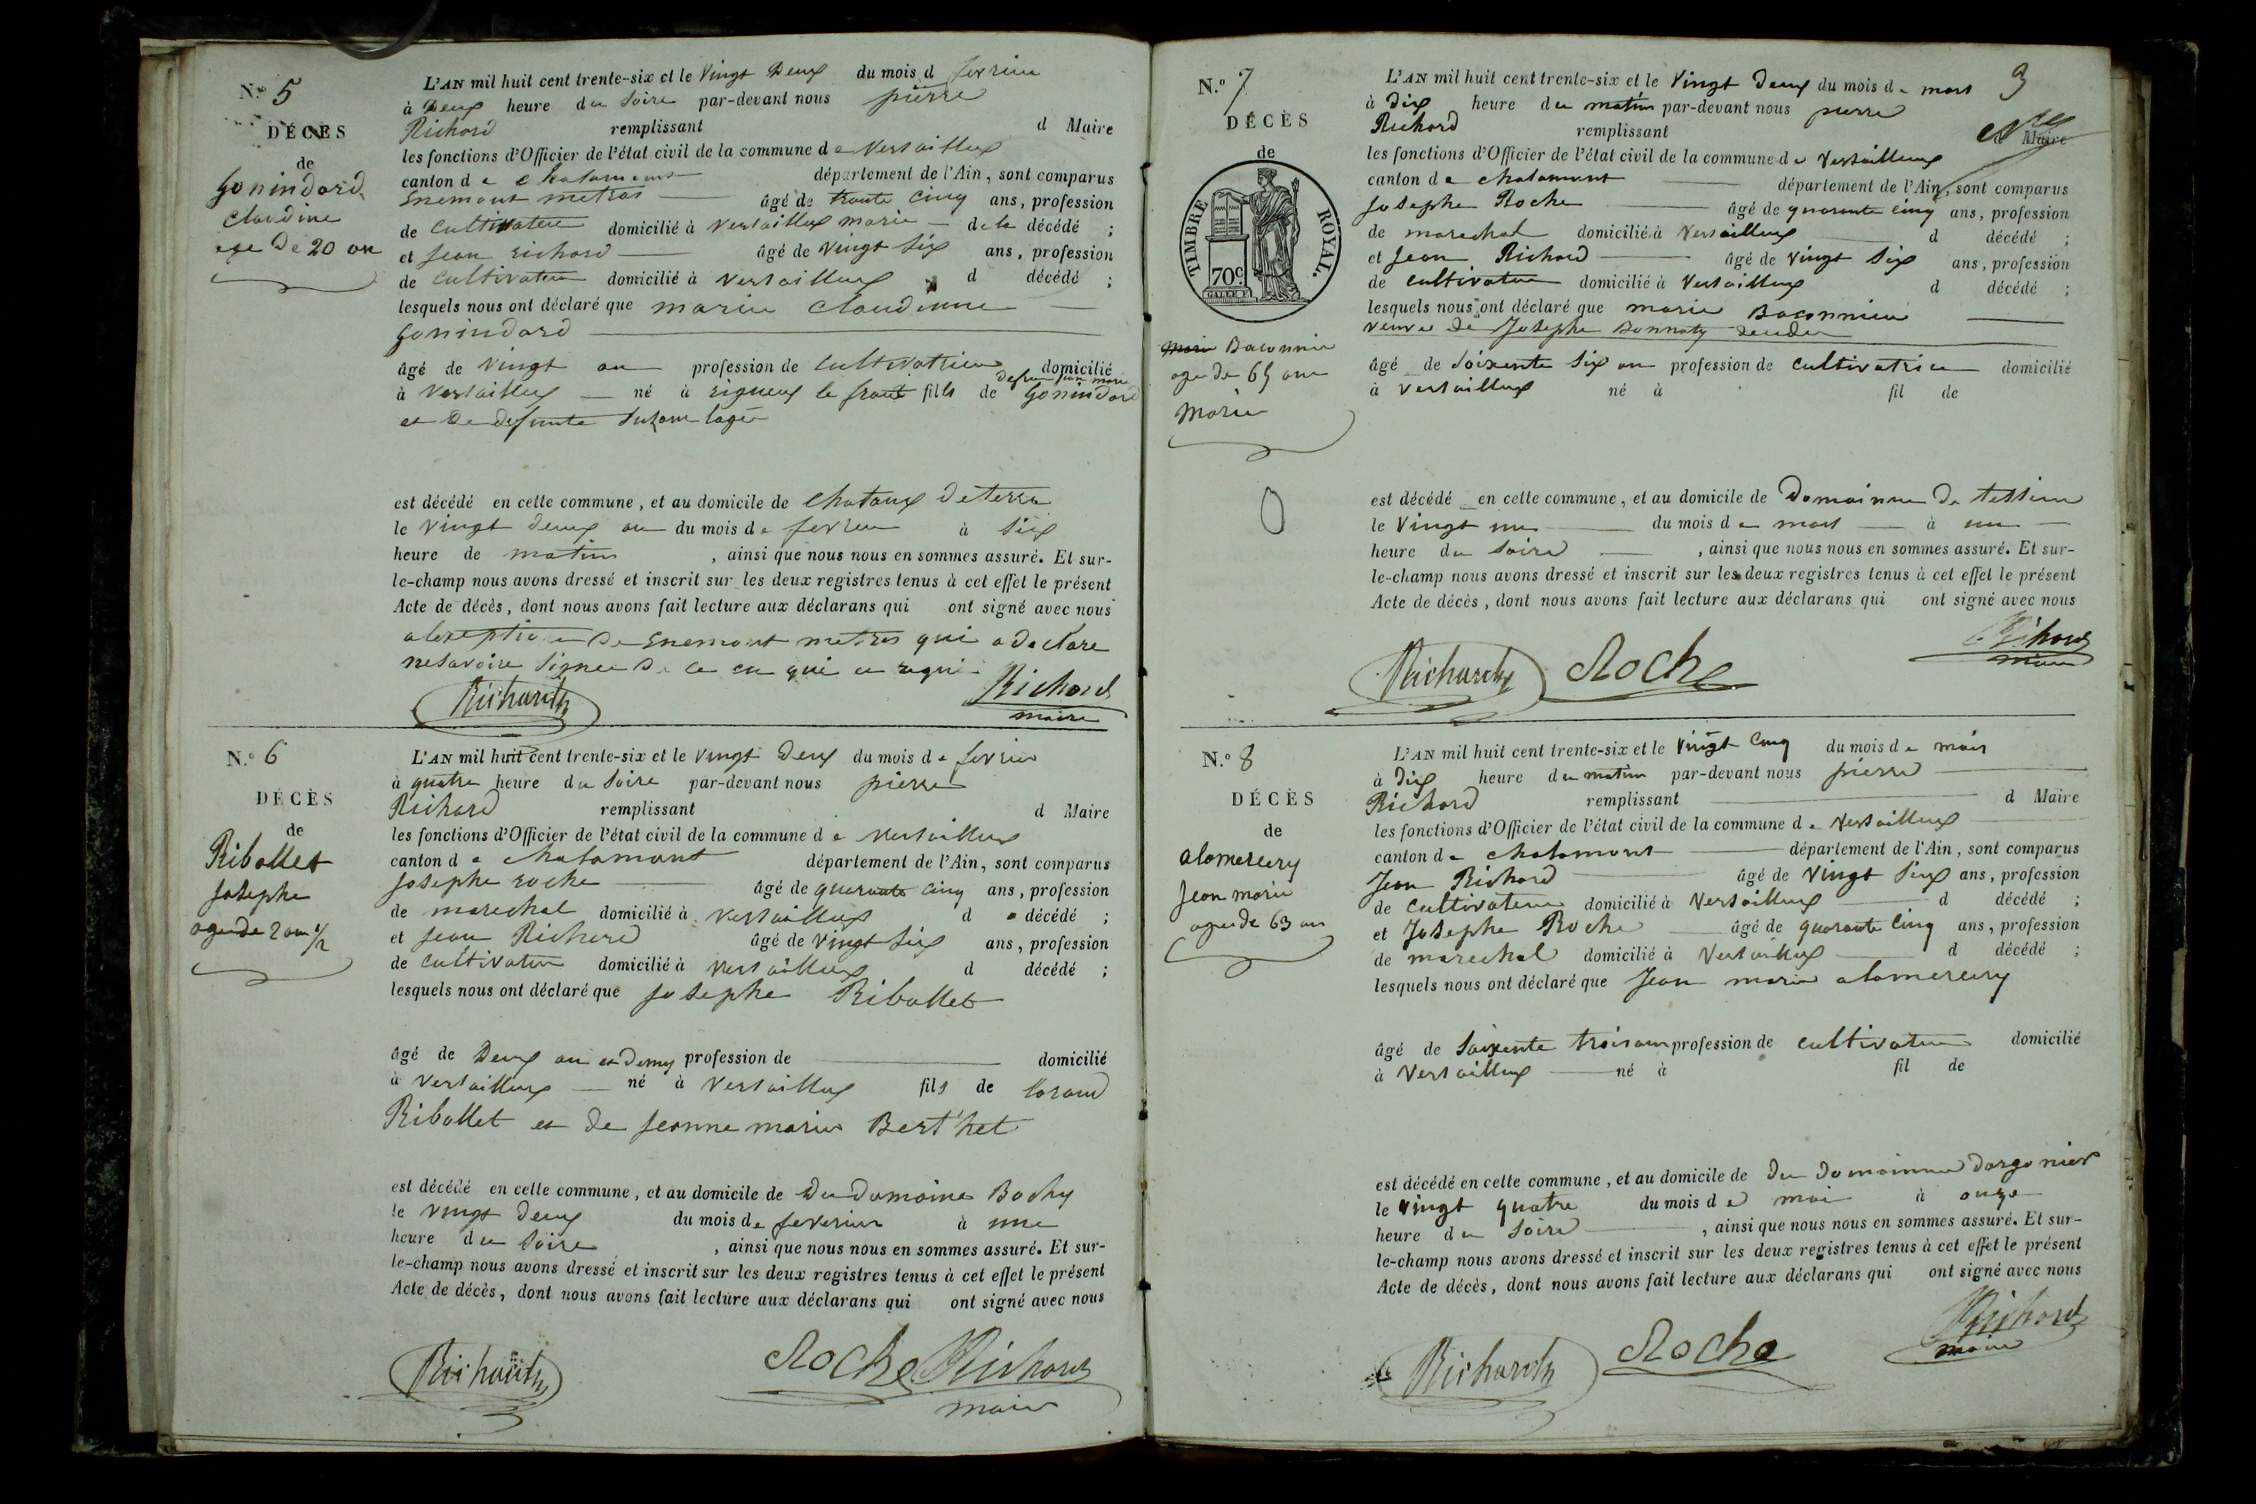 N.º 5
DÉCÈS
de
Gonindard
Claudine
age de 20 an
L'AN mil huit cent trente-six et le vingt Deux du mois d fevrier
à Deux heure du Soire par-devant nous pierre
Richard remplissant d Maire
les fonctions d'Officier de l'état civil de la commune de Versailleux
canton de chalamont département de l'Ain, sont comparus
Enemont metras âgé de trante cinq ans, profession
de cultivateur domicilié à Versailleux marie de la décédé ;
et Jean Richard âgé de vingt Six ans, profession
de cultivateur domicilié à Versailleux d décédé ;
lesquels nous ont déclaré que marie Claudinne
gonindard
âgé de vingt an profession de Cultivatrice domicilié
à Versailleux né à rigneux le franc fills de defun jan marie Gonindard
et de defunte Suzane lager
est décédé en cette commune, et au domicile de chataux de terre
le vingt deux au du mois de fevrier à Six
heure de matin , ainsi que nous nous en sommes assuré. Et sur-
le-champ nous avons dressé et inscrit sur les deux registres tenus à cet effet le présent
Acte de décès, dont nous avons fait lecture aux déclarans qui ont signé avec nous
alexeption de Enemont metras qui a declare
nesavoire Signee de ce en qui ce requi
Richard Richard
maire
N.º 6
DÉCÈS
de
Ribollet
Josephe
age de 2 an 1/2
L'AN mil huit cent trente-six et le vingt Deux du mois de fevrier
à quatre heure du Soire par-devant nous pierre
Richard remplissant d Maire
les fonctions d'Officier de l'état civil de la commune de Versailleux
canton de chalamont département de l'Ain, sont comparus
Josephe roche âgé de quarante cinq ans, profession
de marechal domicilié à Versailleux d décédé ;
et Jean Richard âgé de vingt Six ans, profession
de cultivateur domicilié à Versailleux d décédé ;
lesquels nous ont déclaré que Josephe Ribollet
âgé de Deux an et Demy profession de domicilié
à Versailleux né à Versailleux fils de Loraud
Ribollet et de Jeanne marie Bert'het
est décédé en cette commune, et au domicile de Du Domaine Bachy
le vingt Deux du mois de feverier à une
heure du Soire , ainsi que nous nous en sommes assuré. Et sur-
le-champ nous avons dressé et inscrit sur les deux registres tenus à cet effet le présent
Acte de décès, dont nous avons fait lecture aux déclarans qui ont signé avec nous
Richard Roche Richard
maire
3
N.º 7
DÉCÈS
de
TIMBRE ROYAL.
70c.
marie Baconnie
age de 65 ans
Marie
L'AN mil huit cent trente-six et le Vingt Deux du mois de mars
à Dix heure du matin par-devant nous pierre
Richard remplissant d Maire
les fonctions d'Officier de l'état civil de la commune de Versailleux
canton de chalamont département de l'Ain, sont comparus
Josephe Roche âgé de quarante cinq ans, profession
de marechal domicilié à Versailleux d décédé ;
et Jean Richard âgé de vingt Six ans, profession
de cultivateur domicilié à Versailleux d décédé ;
lesquels nous ont déclaré que marie Baconnier
veuve de Josephe Bonnaty
âgé de Soixente Six an profession de cultivatrice domicilié
à Versailleux né à fil de
est décédé en cette commune, et au domicile de Domainne De tessine
le Vingt un du mois de mars à une
heure du Soire , ainsi que nous nous en sommes assuré. Et sur-
le-champ nous avons dressé et inscrit sur les deux registres tenus à cet effet le présent
Acte de décès, dont nous avons fait lecture aux déclarans qui ont signé avec nous
Richard Roche Richard
maire
N.º 8
DÉCÈS
de
alamercery
Jean marie
age de 63 an
L'AN mil huit cent trente-six et le vingt cinq du mois de mars
à Dix heure du matin par-devant nous pierre
Richard remplissant d Maire
les fonctions d'Officier de l'état civil de la commune de Versailleux
canton de chalamont département de l'Ain, sont comparus
Jean Richard âgé de vingt Six ans, profession
de cultivateur domicilié à Versailleux d décédé ;
et Josephe Roche âgé de quarante cinq ans, profession
de marechal domicilié à Versailleux d décédé ;
lesquels nous ont déclaré que Jean marie alamercery
âgé de Soixente trois an profession de cultivateur domicilié
à Versailleux né à fil de
est décédé en cette commune, et au domicile de du domainne dargonier
le vingt quatre du mois de mai à onze
heure du Soire , ainsi que nous nous en sommes assuré. Et sur-
le-champ nous avons dressé et inscrit sur les deux registres tenus à cet effet le présent
Acte de décès, dont nous avons fait lecture aux déclarans qui ont signé avec nous
Richard Roche Richard
maire